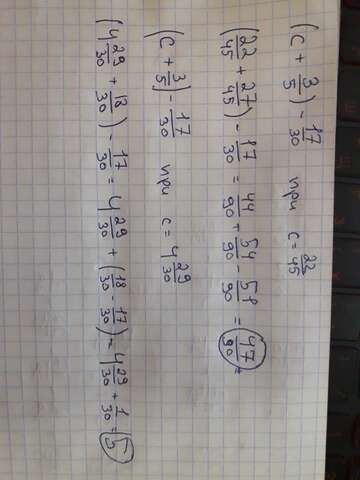 (c + 3/5) - 17/30 при c = 22/45
(22/45 + 27/45) - 17/30 = 44/90 + 54/90 - 51/90 = 47/90 =
(c + 3/5) - 17/30 при c = 4 29/30
(4 29/30 + 18/30) - 17/30 = 4 29/30 + (18/30 - 17/30) = 4 29/30 + 1/30 = 5